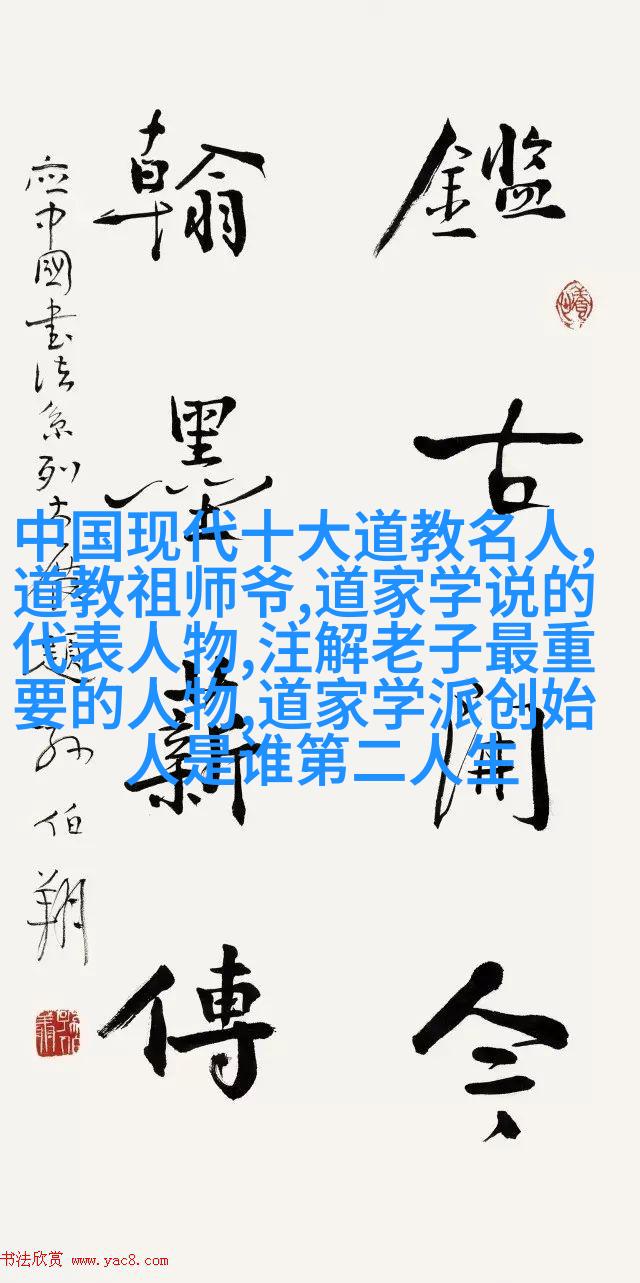 鑑古開今
翰墨薪傳
應中國書法系列大展題
孙伯翔
中国现代十大道教名人,
道教祖师爷,道家学说的
代表人物,注解老子最重
要的人物,道家学派创始
人是谁第二人生
书法欣赏 www.yac8.com